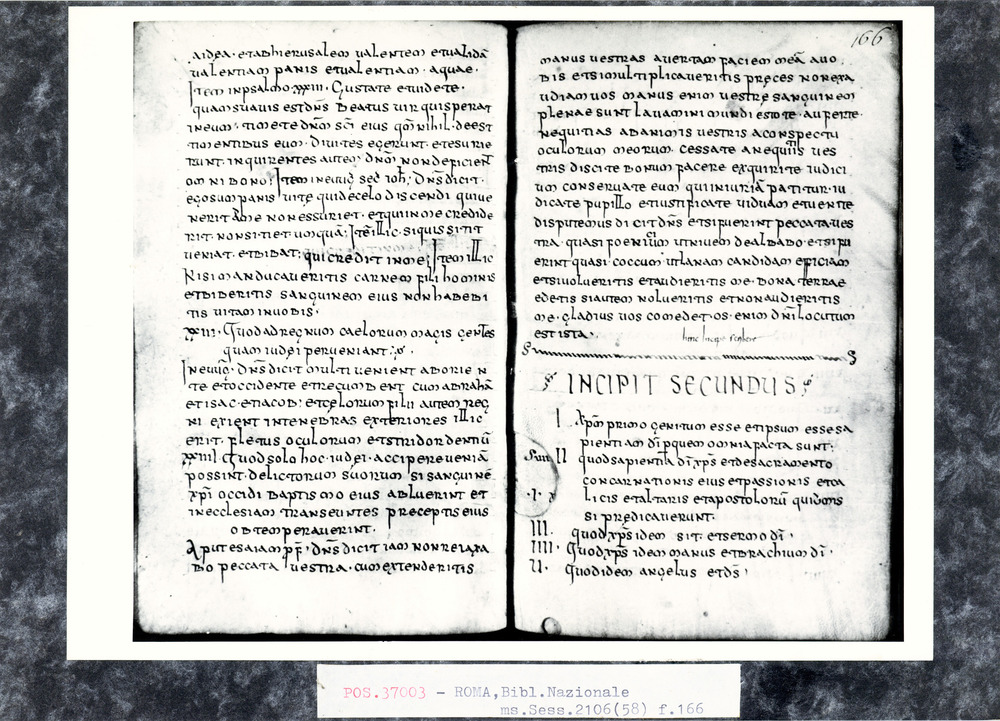 aidea· etabhierusalem ualentem etualidā
ualentiam panis etualentiam· aquae·
Item inpsalmo xxxiii· Gustate etuidete·
quamsuauis estdn̄s beatus uir quisperat
ineum· timetedn̄m sc̄i eius qm̄ nihil·deest
timentibus eum· diuites egerunt· etesurie
runt· inquirentes autem dn̄m nondeficient
omni bono; Item ineuḡ sed ioh̄; Dn̄s dicit·
egosum panis uitę quidecelo discendi quiue
nerit ame nonessuriet· etquiinme credide
rit· nonsitiet umquā; Itē illic· siquis sitit
ueniat· etbibat; qui credit inme; Item illic
Nisi manducaueritis carnem filihominis
etbiberitis sanguinem eius nonhabebi
tis uitam inuobis·
xxiii· Quodadregnum caelorum magis gentes
quam iudei perueniant·
Ineuḡ· Dn̄s dicit multi uenient aborien
te etoccidente etrecumbent cum abrahā
etisac·etiacob; etcęlorum filii autem reg
ni exient intenebras exteriores illic
erit· fletus oculorum etstridor dentiū
xxiiii Quodsolo hoc·iudei·acciperę ueniā
possint·delictorum suorum si sanguinē
xp̄i occidi baptismo eius abluerint et
inecclesiam transeuntes preceptis eius
obtemperauerint·
Aput esaiam pf̄· Dn̄s dicit iam nonrelaxa
bo peccata uestra· cumextenderitis
166
manus uestras auertam faciem meā auo
bis etsimultiplicaueritis pręces nonexa
udiam uos manus enim uestrę sanguinem
plenae sunt lauamini mundi estote·auferte·
nequitias abanimis uestris aconspectu
oculorum meorum· cessate anequitiis ues
tris discite bonum facere exquirite iudici
um conseruate eum quiiniuriā patitur·iu
dicate pupillo etiustificate uiduam etuenite
disputemus dicit dn̄s etsifuerint peccataues
tra· quasi foenitium utniuem dealbabo·etsifu
erint quasi·coccum utlanam candidam efficiam
etsiuolueritis etaudieritis me· bona terrae
edetis siautem nolueritis etnonaudieritis
me· gladius uos comedet·os·enim dn̄i locutum
est ista·
hinc incipe scribere
INCIPIT SECUNDUS
I Xp̄m primo genitum esse etipsum essesa
pientiam dī pquem omnia facta sunt·
II quodsapientia dī xp̄s etdesacramento
concarnationis eius etpassionis etca
licis etaltaris etapostolorū quimis
si prędicauerunt·
III. quod xp̄s idem sit· etsermo dī·
IIII· Quod xp̄s idem manus etbrachium dī·
U· Quodidem angelus etds̄·
POS.37003 - ROMA,Bibl.Nazionale
ms.Sess.2106(58) f.166